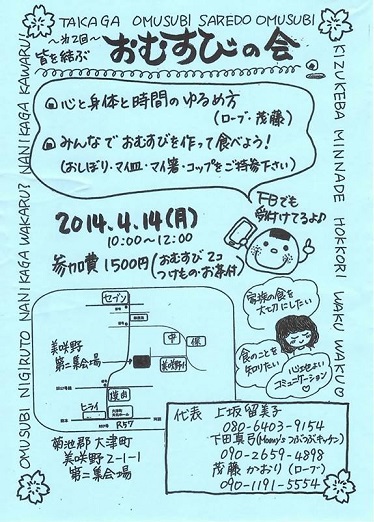 TAKAGA OMUSUBI SAREDO OMUSUBI
KIZUKEBA MINNADE HOKKORI WAKU WAKU
OMUSUBI NIGIRUTO NANIKAGA WAKARU? NANIKAGA KAWARU!
〜第2回〜
皆を結ぶ
おむすびの会
心と身体と時間のゆるめ方
(ローブ・茂藤)
みんなでおむすびを作って食べよう!
(おしぼり・マイ皿・マイ箸・コップをご持参下さい)
FBでも
受付けてるよ♪
2014.4.14(月)
10:00〜12:00
参加費1500円(おむすび2コ
つけもの・お茶付)
家族の食を
大切にしたい
食のことを
知りたい
心地よい
コミュニケーション
セブン
美咲野
第二集会場
中
保
美咲野小
ヒライ
R57
菊池郡大津町
美咲野2-1-1
第二集会場
代表 上坂留美子
080-6403-9154
下田真弓(Moony'sつぶつぶキッチン)
090-2659-4898
茂藤かおり(ローブ)
090-1191-5554